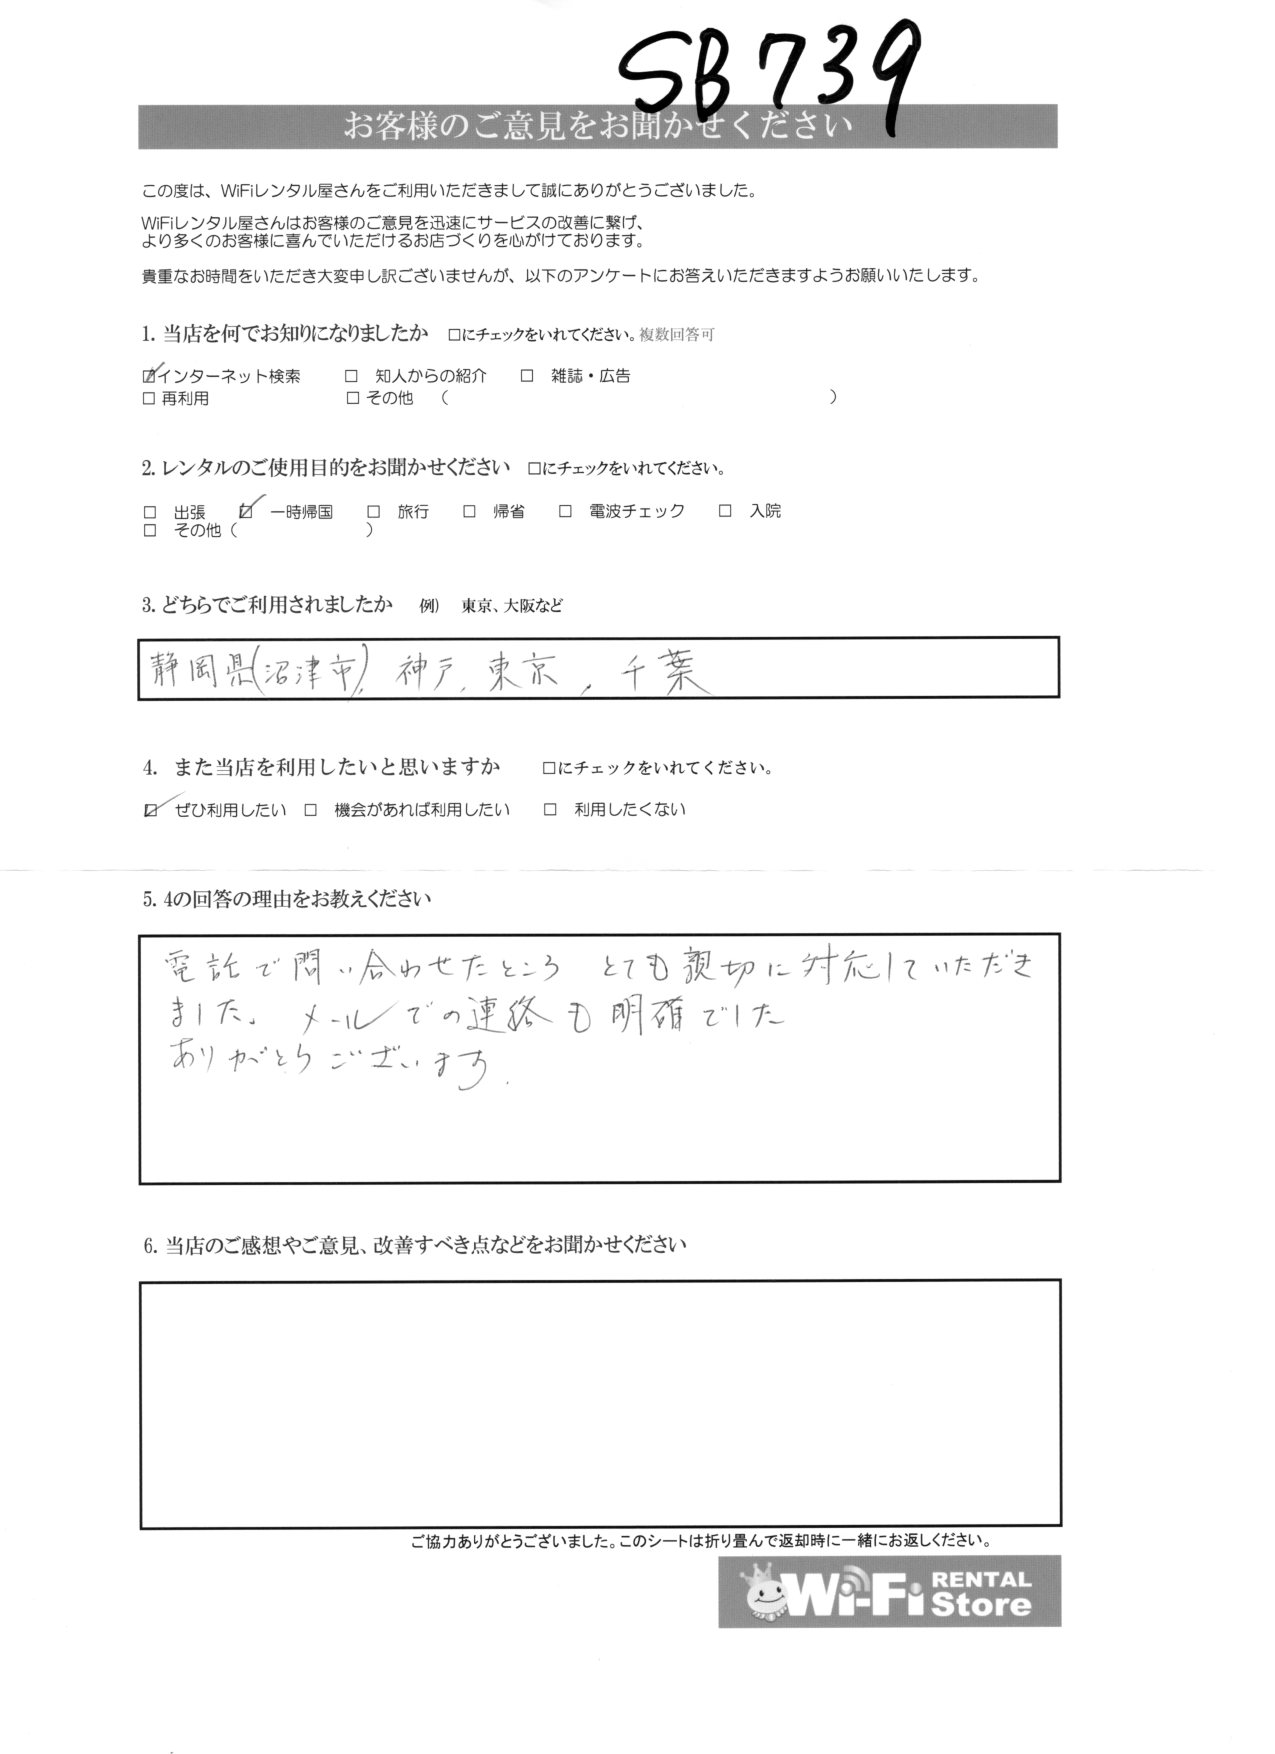 SB739
お客様のご意見をお聞かせください
この度は、WiFiレンタル屋さんをご利用いただきまして誠にありがとうございました。
WiFiレンタル屋さんはお客様のご意見を迅速にサービスの改善に繋げ、
より多くのお客様に喜んでいただけるお店づくりを心がけております。
貴重なお時間をいただき大変申し訳ございませんが、以下のアンケートにお答えいただきますようお願いいたします。
1. 当店を何でお知りになりましたか　□にチェックをいれてください。複数回答可
☑インターネット検索　□ 知人からの紹介　□ 雑誌・広告
□ 再利用　□ その他　（　）
2. レンタルのご使用目的をお聞かせください　□にチェックをいれてください。
□ 出張　☑ 一時帰国　□ 旅行　□ 帰省　□ 電波チェック　□ 入院
□ その他（　）
3. どちらでご利用されましたか　例）　東京、大阪など
静岡県(沼津市), 神戸, 東京, 千葉
4. また当店を利用したいと思いますか　□にチェックをいれてください。
☑ ぜひ利用したい　□ 機会があれば利用したい　□ 利用したくない
5. 4の回答の理由をお教えください
電話で問い合わせたところ　とても親切に対応していただき
ました。メールでの連絡も明確でした
ありがとうございます.
6. 当店のご感想やご意見、改善すべき点などをお聞かせください
ご協力ありがとうございました。このシートは折り畳んで返却時に一緒にお返しください。
Wi-Fi RENTAL Store